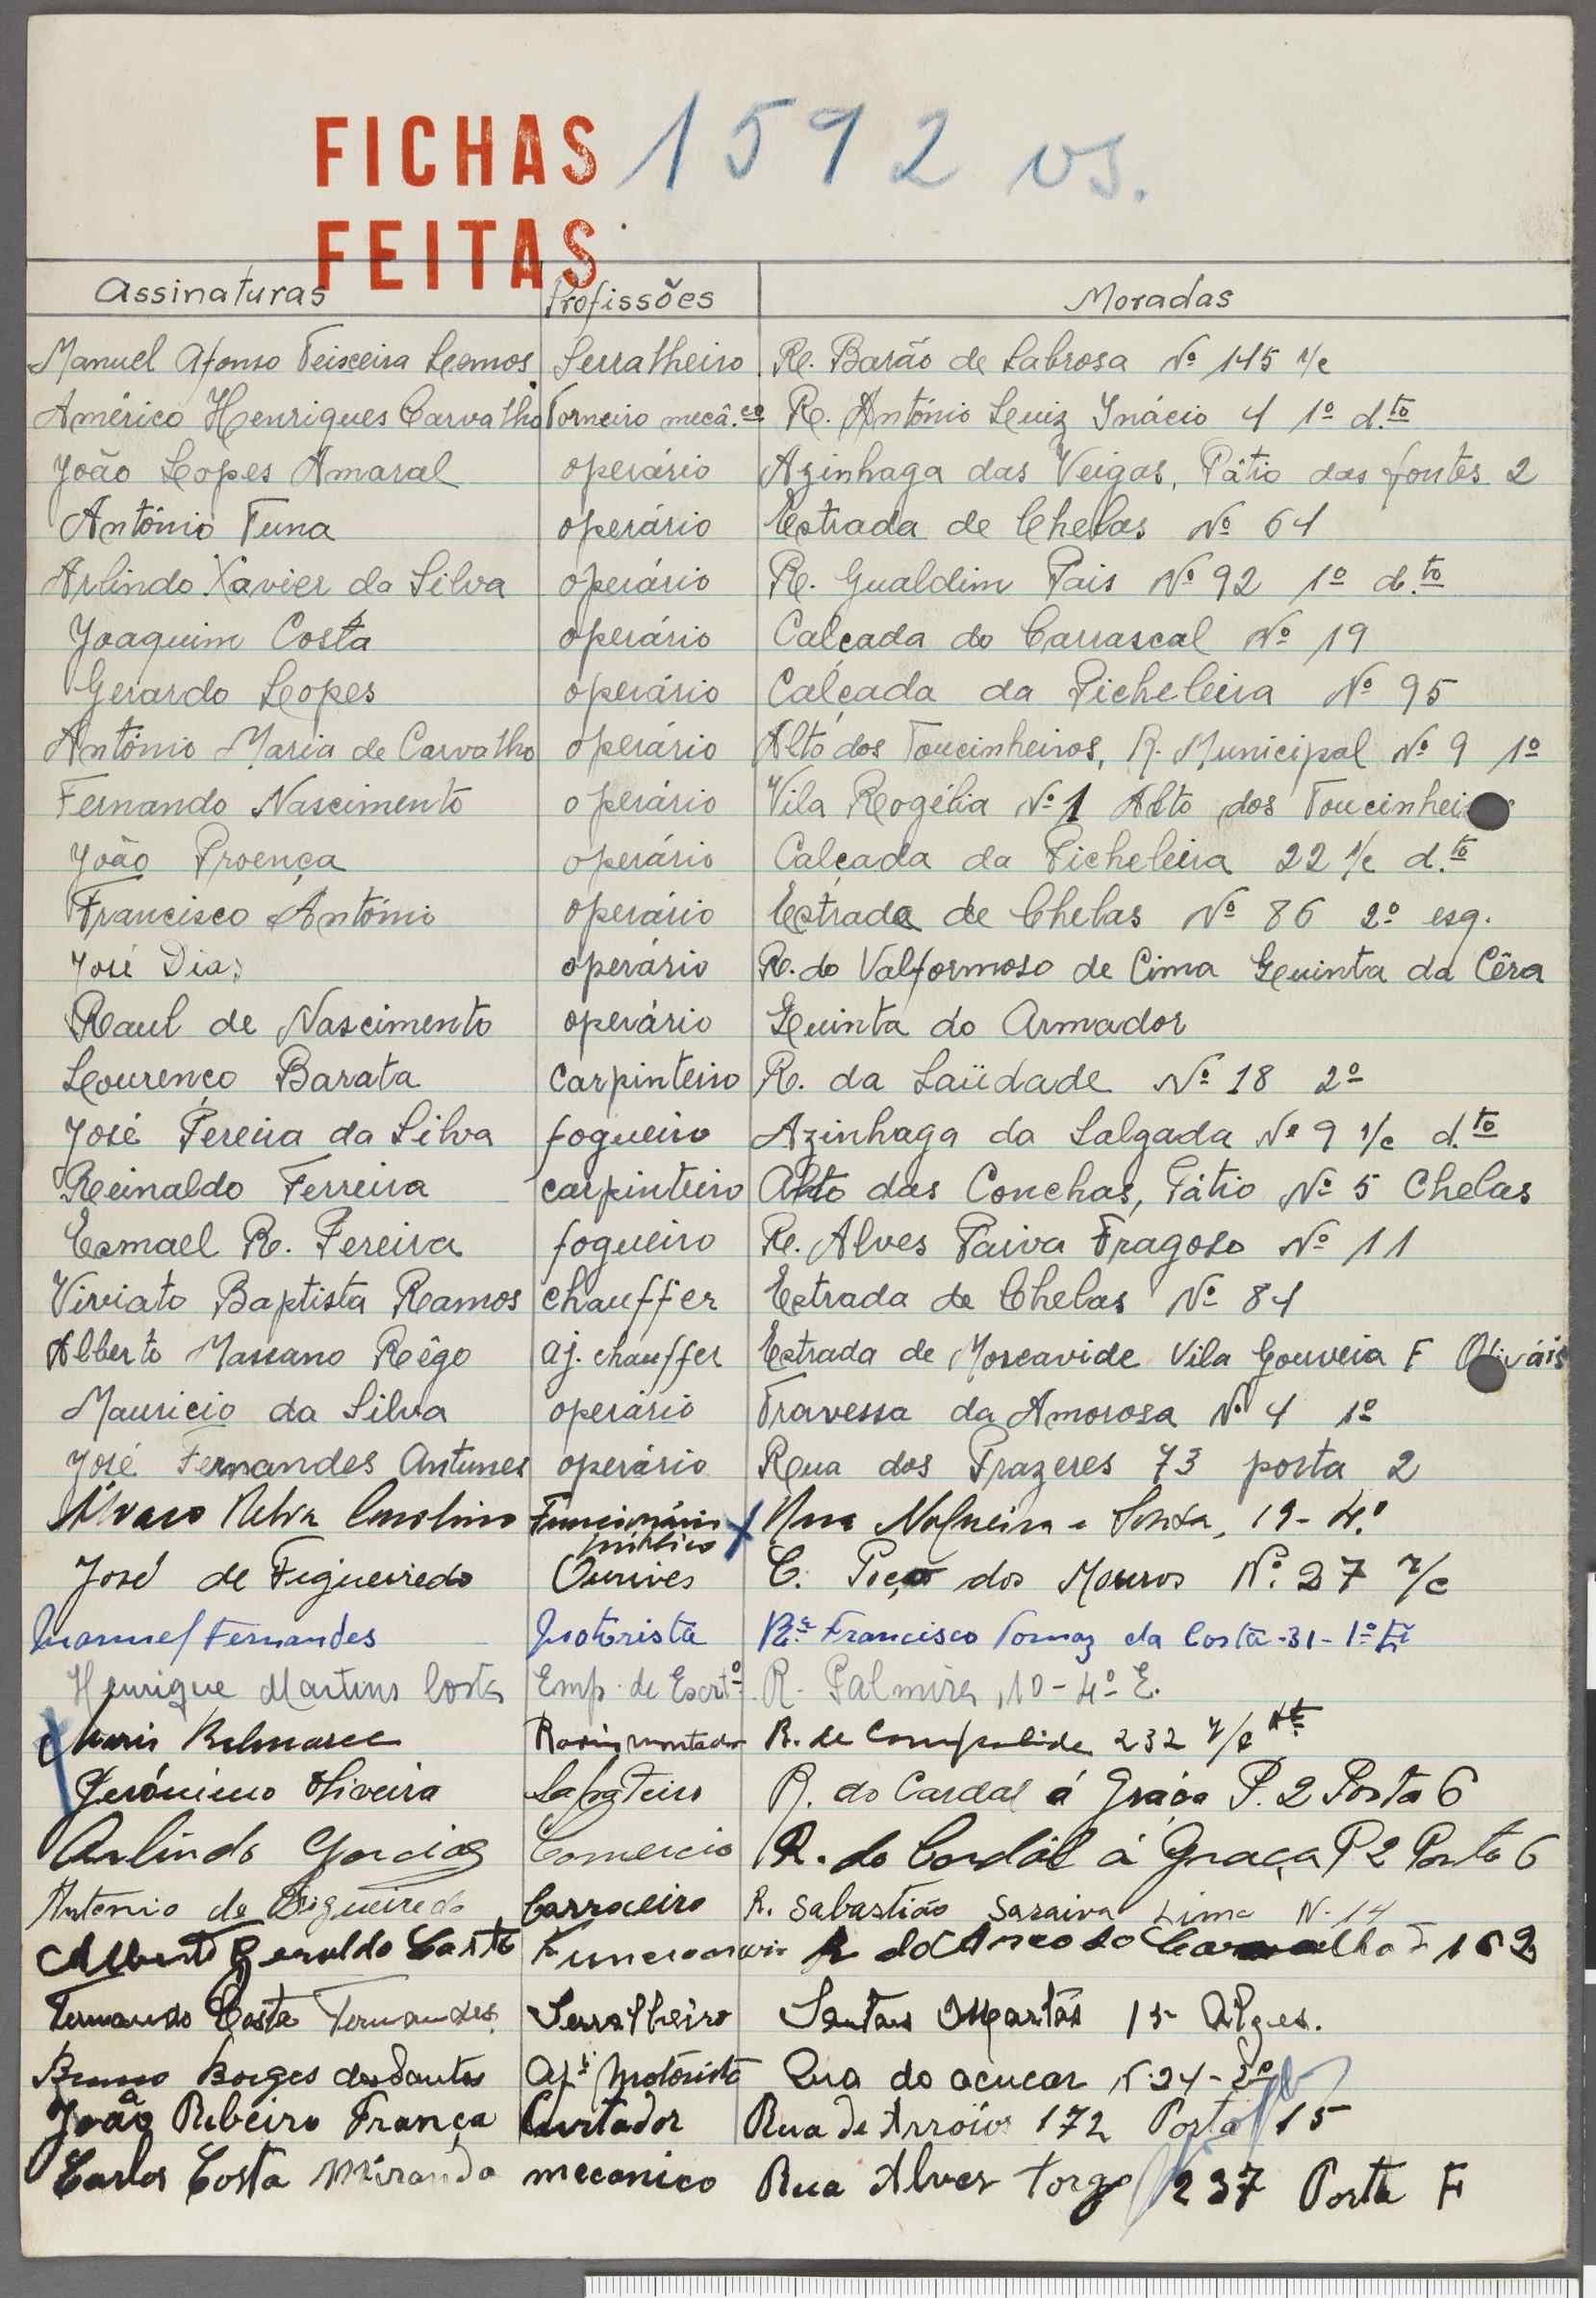 FICHAS 1592 vs.
FEITAS
Assinaturas Profissões Moradas
Manuel Afonso Teixeira Lemos Serralheiro R. Barão de Sabrosa Nº 145 r/c
Américo Henriques Carvalho Torneiro mecâ.co R. António Luiz Inácio 4 1º d.to
João Lopes Amaral operário Azinhaga das Veigas, Pátio das fontes 2
António Tuna operário Estrada de Chelas Nº 64
Arlindo Xavier da Silva operário R. Gualdim Pais Nº 92 1º d.to
Joaquim Costa operário Calçada do Carrascal Nº 19
Gerardo Lopes operário Calçada da Picheleira Nº 95
António Maria de Carvalho operário Alto dos Toucinheiros, R. Municipal Nº 9 1º
Fernando Nascimento operário Vila Rogélia Nº 1 Alto dos
João Proença operário Calçada da Picheleira 22 r/c d.to
Francisco António operário Estrada de Chelas Nº 86 2º esq.
José Dias operário R. do Valformoso de Cima Quinta da Cêra
Raul de Nascimento operário Quinta do Armador
Lourenço Barata carpinteiro R. da Saüdade Nº 18 2º
José Pereira da Silva fogueiro Azinhaga da Salgada Nº 9 r/c d.to
Reinaldo Ferreira carpinteiro Alto das Conchas, Pátio Nº 5 Chelas
Esmael R. Pereira fogueiro R. Alves Paiva Fragoso Nº 11
Viriato Baptista Ramos chauffer Estrada de Chelas Nº 84
Alberto Mascano Rêgo aj. chauffer Estrada de Moscavide Vila Gouveia F
Mauricio da Silva operário Travessa da Amorosa Nº 4 1º
José Fernandes Antunes operário Rua dos Prazeres 73 porta 2
Álvaro Funcionário público Rua Nogueira e Sousa, 19-4.º
José de Figueiredo Ourives C. Poço dos Mouros Nº. 27 r/c
Manuel Fernandes Motorista R.ª Francisco Tomaz da Costa-31-1º
Henrique Martins Costa Emp. de Escrt.º R. Palmira, 10-4º E.
R. de Campolide 232 r/c
Jerónimo Oliveira Sapateiro R. do Cardal á Graça P. 2 Porta 6
Arlindo Garcia Comercio R. do Cardál á Graça P 2 Porta 6
António de Figueiredo Carroceiro R. Sabastião Saraiva Lima N-14
Alberto Geraldo Costa R do Arco do 162
Fernando Costa Fernandes Serralheiro Santas Martas 15 Algés.
Borges dos Santos Motorista Rua do açucar N. 24-2º
João Ribeiro França Curtador Rua de Arroios 172 Porta 15
Carlos Costa Miranda mecanico Rua Alves Torgo 237 Porta F